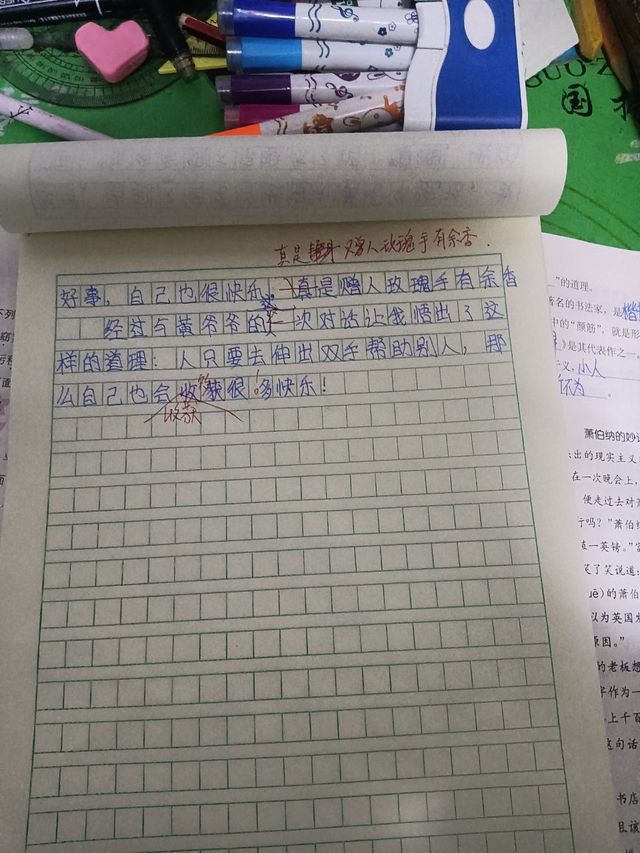 真是赠人玫瑰手有余香.
好事，自己也很快乐，真是赠人玫瑰手有余香
经过与黄爷爷的这一次对话让我悟出了这
样的道理：人只要去伸出双手帮助别人，那
么自己也会收获很多快乐！
收获
国
”的道理。
著名的书法家，是楷
中的“颜筋”，就是形
》是其代表作之一，
小人
怀为
萧伯纳的妙
出的现实主义
在一次晚会上，
便走过去对
行吗？”萧伯
值一英镑。”
笑了笑说道：
的萧伯
以为英国
原因。”
的老板想
字作为一
上千百
这句话
书店
且该